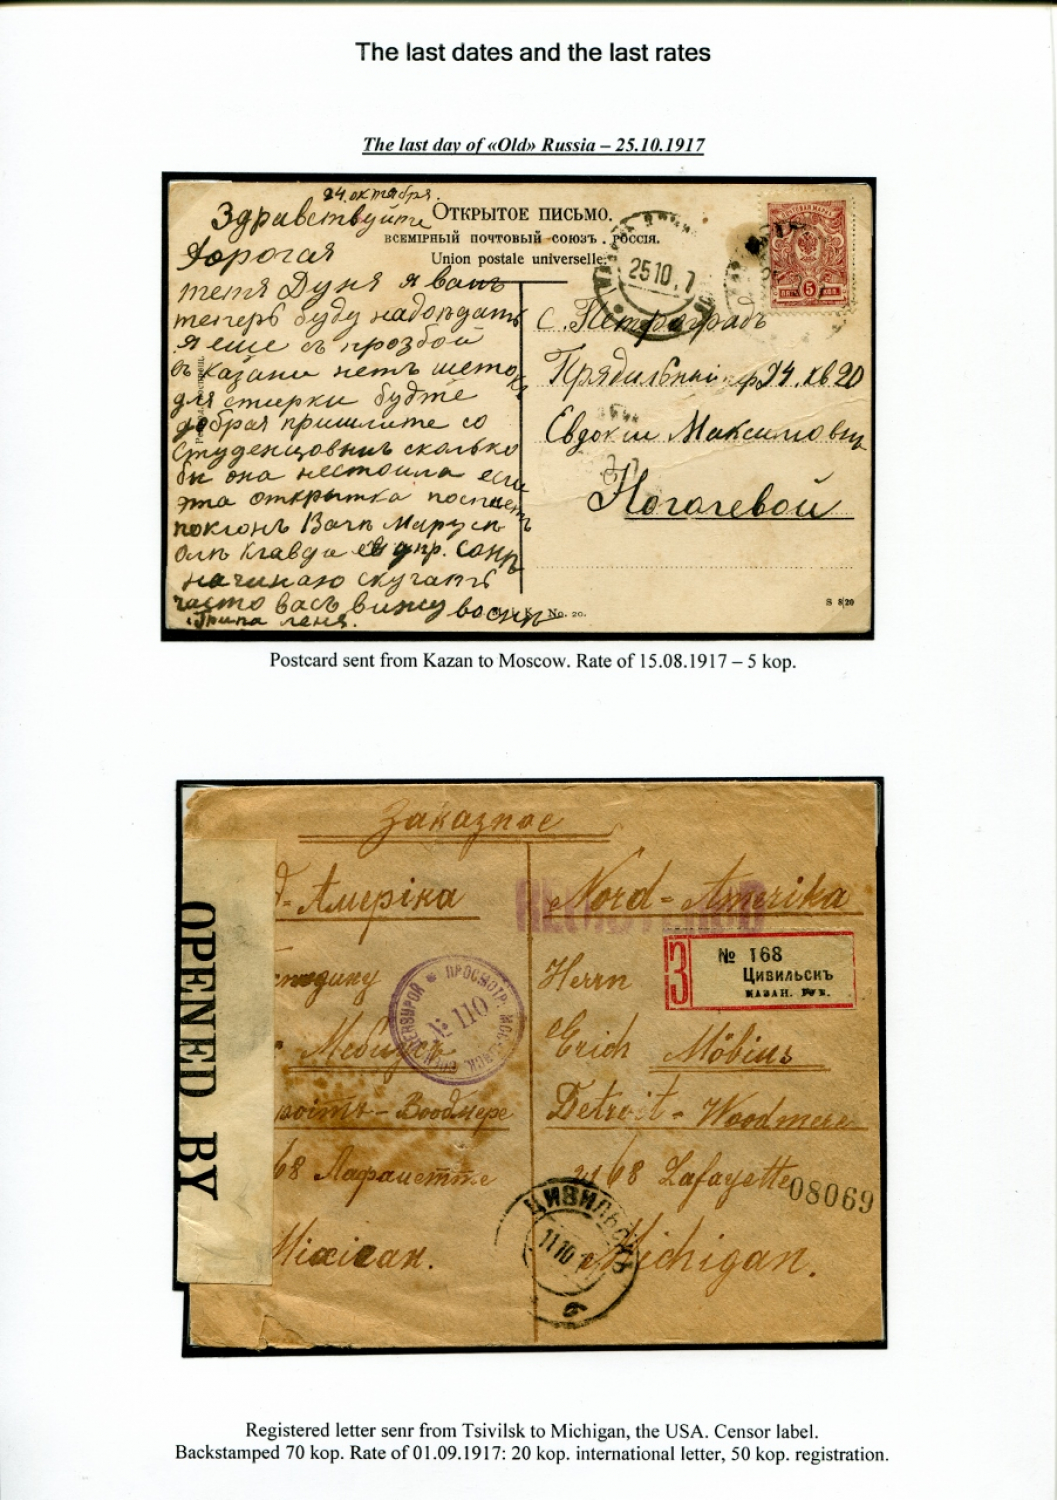 The last dates and the last rates
The last day of «Old» Russia – 25.10.1917
24 октября.
Здравствуйте
Дорогая
тетя Дуня я вамъ
теперь буду надоедать
я еще съ прозбой
въ казани нетъ щетокъ
для стирки будте
добрая пришлите со
Студенцовымъ сколько
бы она нестоила если
эта открытка поспеетъ
поклонъ Вачъ Маруси
Оли Клавди
начинаю скучать
часто васъ вижу
леня.
ОТКРЫТОЕ ПИСЬМО.
ВСЕМІРНЫЙ ПОЧТОВЫЙ СОЮЗЪ. РОССІЯ.
Union postale universelle.
25 10. 7
5
с. Петроградъ
Прядильный 24. кв 20
Евдокіи Максимовны
Ногогевой
No. 20.
S 8|20
Postcard sent from Kazan to Moscow. Rate of 15.08.1917 – 5 kop.
Заказное
OPENED BY
д-Амеріка
Nord-Amerika
REGISTERED
З
№ 168
Цивильскъ
КАЗАН. ГУБ.
сподину
Herrn
ПРОСМОТР.
№ 110
Мебиусъ
Erich Möbius
роитъ - Воодмере
Detroit - Woodmere
68 Лафаиетте
2168 Lafayette
08069
ЦИВИЛЬСКЪ
11 10
б
Михиган.
Michigan.
Registered letter senr from Tsivilsk to Michigan, the USA. Censor label.
Backstamped 70 kop. Rate of 01.09.1917: 20 kop. international letter, 50 kop. registration.